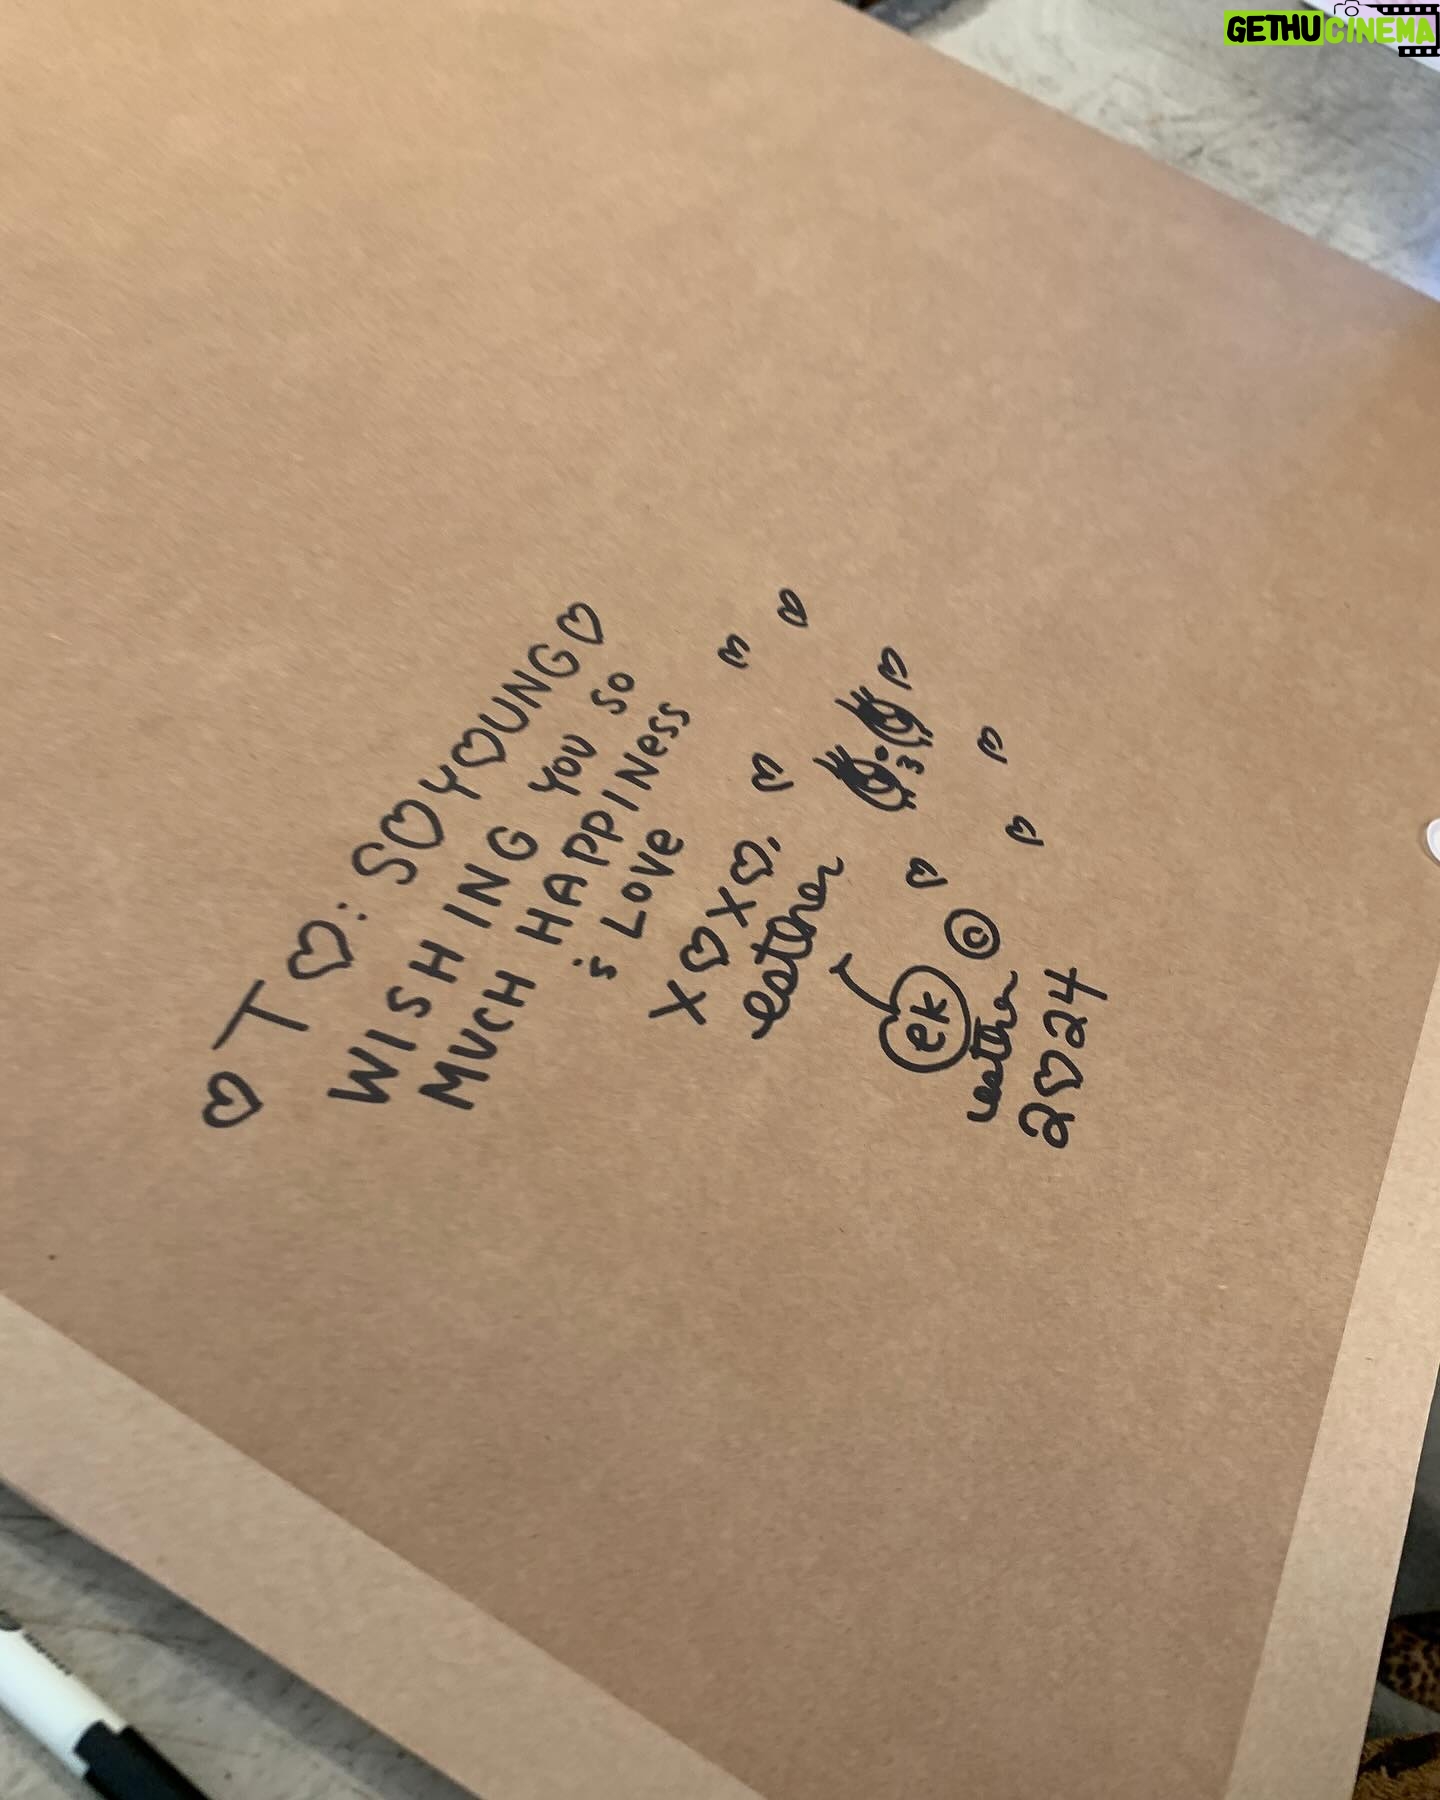 ♡ T♡: S♡Y♡UNG♡
WISHING YOU SO
MUCH HAPPINess
is LOVe
X♡X♡.
esther
ek
©
esther
2♡24
GETHUCINEMA